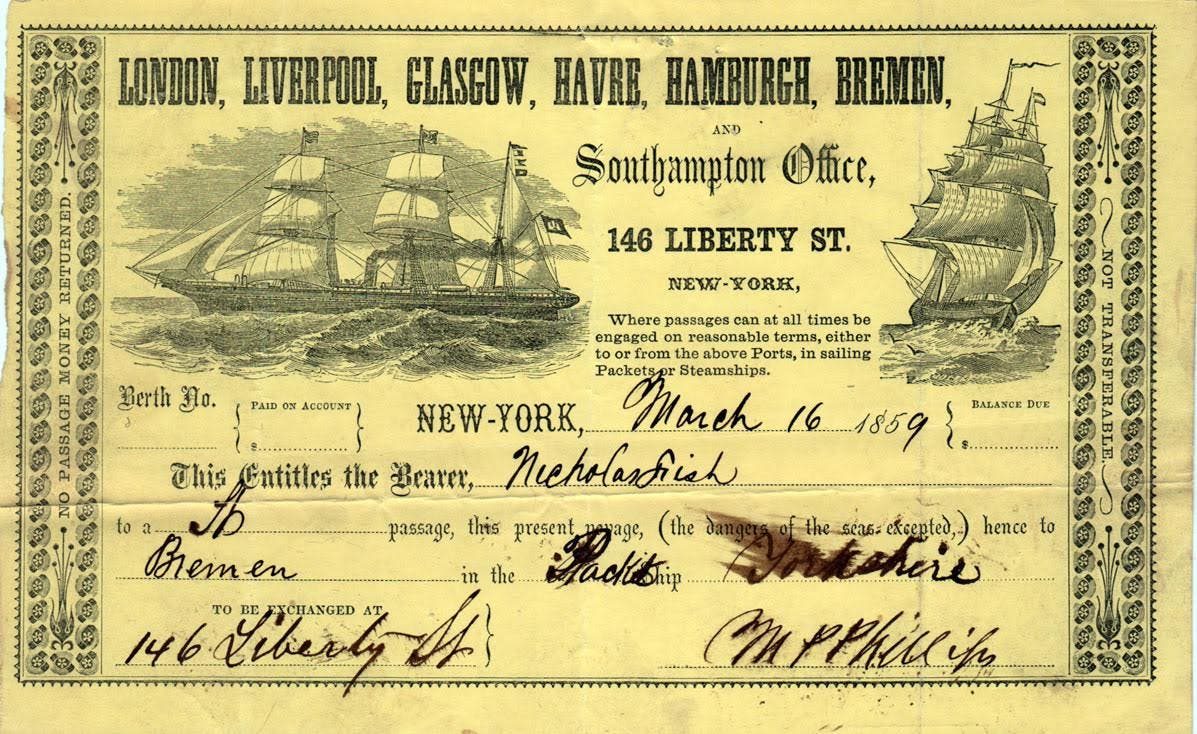 LONDON, LIVERPOOL, GLASGOW, HAVRE, HAMBURGH, BREMEN,
AND
Southampton Office,
146 LIBERTY ST.
NEW-YORK,
Where passages can at all times be
engaged on reasonable terms, either
to or from the above Ports, in sailing
Packets or Steamships.
NO PASSAGE MONEY RETURNED.
NOT TRANSFERABLE.
Berth No. { PAID ON ACCOUNT $ } NEW-YORK, March 16 1859 { BALANCE DUE $
This Entitles the Bearer, Nicholas Fish
to a St passage, this present voyage, (the dangers of the seas excepted,) hence to
Bremen in the Packet Ship Yorkshire
TO BE EXCHANGED AT
146 Liberty St } M P Phillips